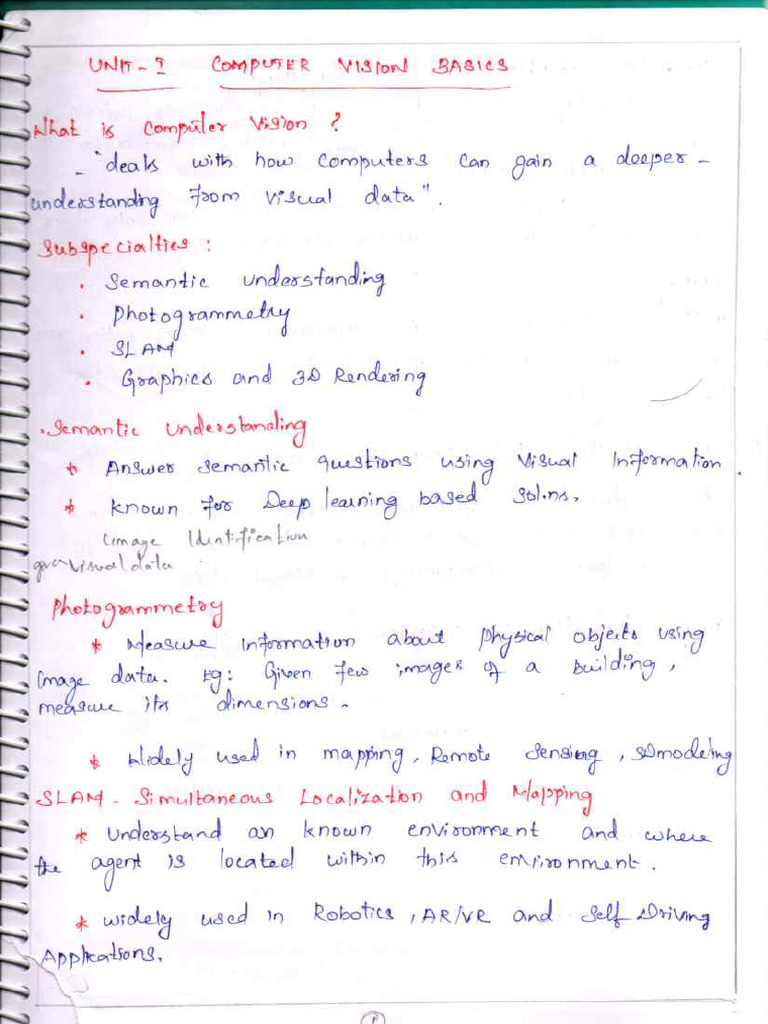 UNIT-I COMPUTER VISION BASICS
What is computer vision ?
- "deals with how computers can gain a deeper -
understanding from visual data".
Subspecialties :
• Semantic Understanding
• Photogrammetry
• SLAM
• Graphics and 3D Rendering
• Semantic Understanding
* Answer semantic questions using Visual Information
* known for Deep learning based Sol.ns.
Image Identification
visual data
Photogrammetry
* Measure information about physical objects using
Image data. Eg: Given few images of a building,
measure its dimensions.
* Widely used in mapping, Remote Sensing, 3Dmodeling
SLAM - Simultaneous Localization and Mapping
* Understand an known environment and where
the agent is located within this environment.
* widely used in Robotics, AR/VR and Self Driving
Applications.
1